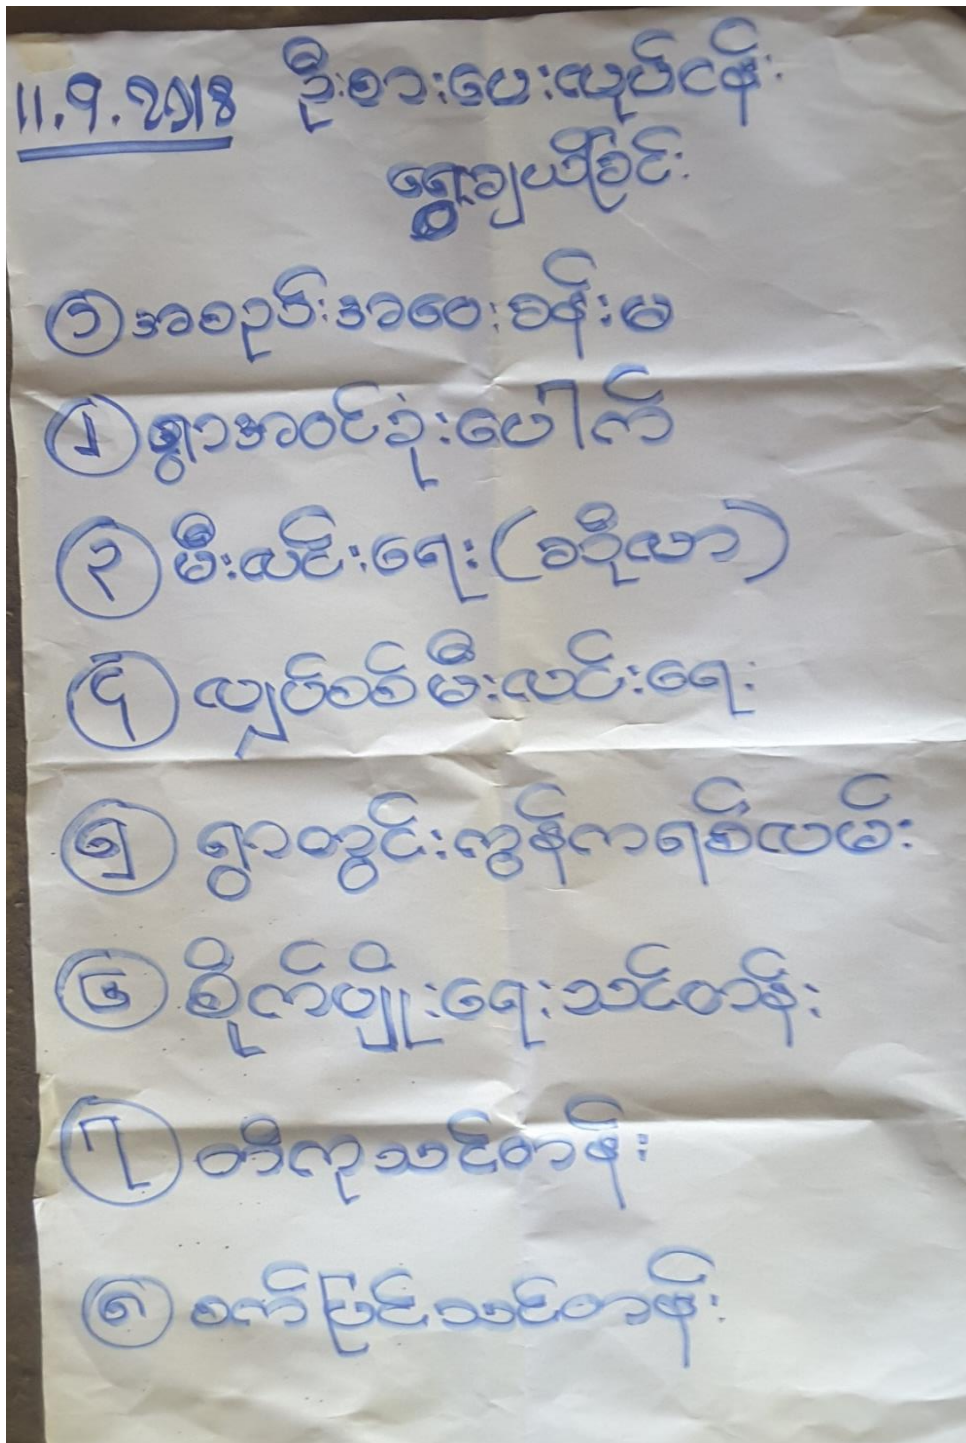 11.9.2018 ဦးစားပေးလုပ်ငန်း
ရွေးချယ်ခြင်း
၁ အစည်းအဝေးခန်းမ
၂ ရွာအဝင်ခုံးပေါက်
၃ မီးလင်းရေး (ဆိုလာ)
၄ လျှပ်စစ်မီးလင်းရေး
၅ ရွာတွင်းကွန်ကရစ်လမ်း
၆ စိုက်ပျိုးရေးသင်တန်း
၇ တိကုသင်တန်း
၈ စက်ပြင်သင်တန်း